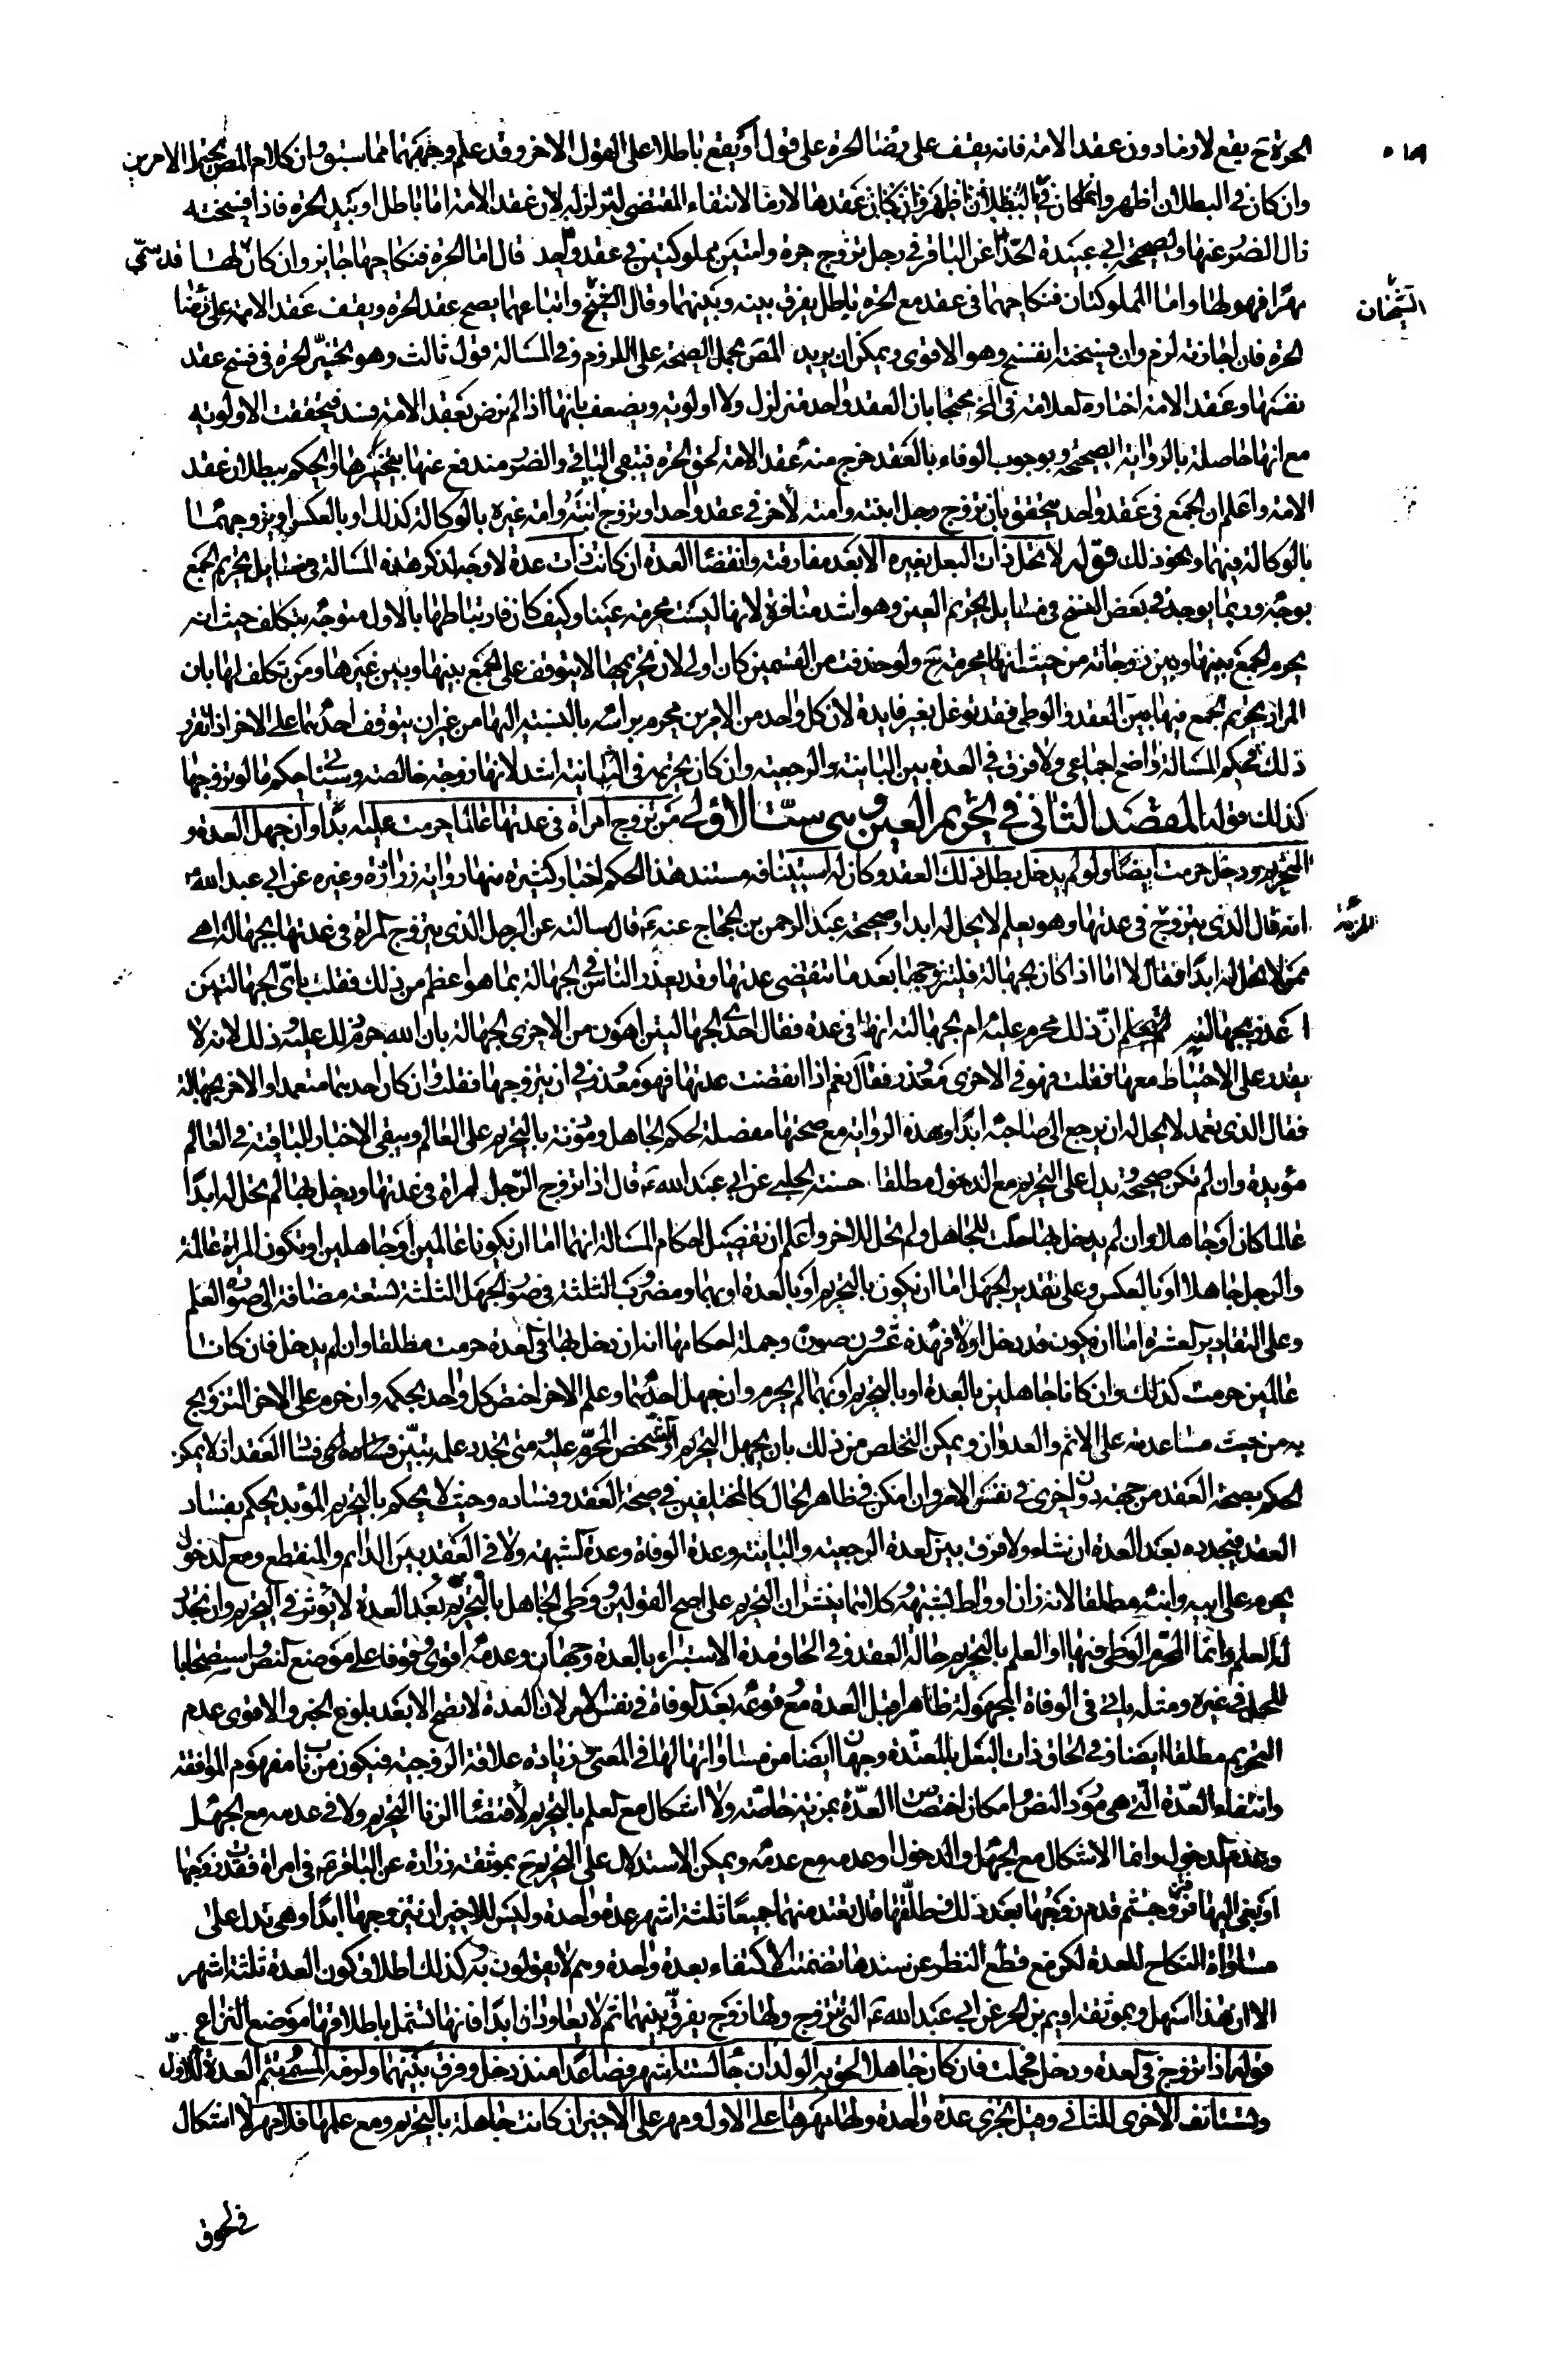 الحرة ح يقع لازما دون عقد الامة فانه يقف على رضا الحرة على قول او يقع باطلا على القول الاخر وقد علم وجههما مما سبق وان كلام المص يحتمل الامرين
وان كان في البطلان اظهر وانما كان عقدها لازما لانتفاء المقتضى لتزلزله لان عقد الامة اما باطل او بيد الحرة فاذا فسخته
زال الضرر عنها ولصحيحة ابي عبيدة الحذاء عن الباقر في رجل تزوج حرة وامتين مملوكتين في عقد واحد قال اما الحرة فنكاحها جايز وان كان قد سمى لها
مهرا فهو لها واما المملوكتان فنكاحهما في عقد مع الحرة باطل يفرق بينه وبينهما وقال الشيخان واتباعهما يصح عقد الحرة ويقف عقد الامة على رضا
الحرة فان اجازته لزم وان فسخته انفسخ وهو الاقوى ويمكن ان يريد المص بحمل الصحة على اللزوم وفي المسالة قول ثالث وهو تخيير الحرة في فسخ عقد
نفسها وعقد الامة اختاره العلامة في المخ محتجا بان العقد واحد متزلزل ولا اولوية ويضعف بانها اذا لم ترض بعقد الامة فسد فتحققت الاولوية
مع انها حاصلة بالرواية الصحيحة وبوجوب الوفاء بالعقد خرج منه عقد الامة لحق الحرة فيبقى الباقي والضرر مندفع عنها بتخيرها والحكم ببطلان عقد
الامة واعلم ان الجمع في عقد واحد يتحقق بان تزوج رجل ابنته وامته لاخر في عقد واحد او تزوج ابنته وامة غيره بالوكالة كذلك او بالعكس او يزوجهما
بالوكالة فيهما ونحو ذلك قوله لا تحل ذات البعل لغيره الا بعد مفارقته وانقضاء العدة ان كانت ذات عدة لا وجه لذكر هذه المسالة في مسايل تحريم الجمع
بوجه وربما يوجد في بعض النسخ في مسايل تحريم العين وهو اشد منافرة لانها ليست محرمة عينا وكيف كان فارتباطها بالاول متوجه بتكلف حيث انه
يحرم الجمع بينها وبين زوجاته من حيث انها محرمة ح ولو حذفت من القسمين كان اولى لان تحريمها لا يتوقف على الجمع بينها وبين غيرها ومن تكلف لها بان
المراد تحريم الجمع فيها بين العقد والوطي فقد توغل بغير فايدة لان كل واحد من الامرين محرم براسه بالنسبة اليها من غير ان يتوقف احدهما على الاخر اذا تقرر
ذلك فحكم المسالة واضح اجماعي ولا فرق في العدة بين البائنة والرجعية وان كان تحريمه في الثانية اشد لانها زوجة خالصة وسياتي حكم ما لو تزوجها
كذلك قوله المقصد الثاني في تحريم العين وهي ست الاولى من تزوج امراة في عدتها عالما حرمت عليه ابدا وان جهل العدة و
التحريم ودخل حرمت ايضا ولو لم يدخل بطل ذلك العقد وكان له استينافه مستند هذا الحكم اخبار كثيرة منها رواية زرارة وغيره عن ابي عبد الله
انه قال الذي يتزوج في عدتها وهو يعلم لا يحل له ابدا وصحيحة عبد الرحمن بن الحجاج عنه ع قال سالته عن الرجل الذي يتزوج المراة في عدتها بجهالة اهي
ممن لا تحل له ابدا فقال لا اما اذا كان بجهالة فليتزوجها بعد ما تنقضي عدتها وقد يعذر الناس في الجهالة بما هو اعظم من ذلك فقلت باي الجهالتين
اعذر بجهالته ان ذلك محرم عليه ام بجهالته انها في عدة فقال احدى الجهالتين اهون من الاخرى الجهالة بان الله حرم ذلك عليه وذلك لانه لا
يقدر على الاحتياط معها فقلت فهو في الاخرى معذور فقال نعم اذا انقضت عدتها فهو معذور في ان يتزوجها فقلت وان كان احدهما متعمدا والاخر بجهالة
فقال الذي تعمد لا يحل له ان يرجع الى صاحبه ابدا وهذه الرواية مع صحتها مفصلة لحكم الجاهل ومؤذنة بالتحريم على العالم ويبقى الاخبار الباقية في العالم
مؤيدة وان لم تكن صحيحة ويدل على التحريم مع الدخول مطلقا حسنة الحلبي عن ابي عبد الله ع قال اذا تزوج الرجل المراة في عدتها ودخل بها لم تحل له ابدا
عالما كان او جاهلا وان لم يدخل بها حلت للجاهل ولم تحل للاخر واعلم ان تفصيل احكام المسالة انهما اما ان يكونا عالمين او جاهلين او تكون المراة عالمة
والرجل جاهلا او بالعكس وعلى تقدير الجهل اما ان يكون بالتحريم او بالعدة او بهما ومضروب الثلثة في صور الجهل الثلثة تسعة مضافة الى صورة العلم
وعلى التقادير العشرة اما ان يكون قد دخل اولا فهذه عشرون صورة وجملة احكامها انه ان دخل بها في العدة حرمت مطلقا وان لم يدخل فان كانا
عالمين حرمت كذلك وان كانا جاهلين بالعدة او بالتحريم او بهما لم يحرم وان جهل احدهما وعلم الاخر اختص كل واحد بحكمه وان حرم على الاخر التزويج
به من حيث مساعدته على الاثم والعدوان ويمكن التخلص من ذلك بان يجهل التحريم او شخص المحرم عليه ومتى تجدد علمه تبين فساد العقد اذ لا يمكن
الحكم بصحة العقد من جهة دون اخرى في نفس الامر وان امكن في ظاهر الحال كالمختلفين في صحة العقد وفساده وحيث لا يحكم بالتحريم المؤبد يحكم بفساد
العقد فيجدده بعد العدة ان شاء ولا فرق بين العدة الرجعية والباينة وعدة الوفاة وعدة الشبهة ولا في العقد بين الدايم والمنقطع ومع الدخول
يحرم على ابيه وابنه مطلقا لانه زان او واطئ بشبهة وكلاهما ينشران التحريم على اصح القولين ووطي الجاهل بالتحريم بعد العدة لا يؤثر في التحريم وان تجدد
له العلم وانما المحرم الوطي فيها او العلم بالتحريم حالة العقد وفي الحاق مدة الاستبراء بالعدة وجهان وعدمه اقوى وقوفا على موضع النص واستصحابا
للحل في غيره ومثله ياتي في الوفاة المجهولة ظاهرا قبل العدة مع وقوعه بعد الوفاة في نفس الامر لان العدة لا تصح الا بعد بلوغ الخبر والاقوى عدم
التحريم مطلقا ايضا وفي الحاق ذات البعل بالمعتدة وجهان ايضا من مساواتها لها في المعنى وزيادة علاقة الزوجية فيكون من باب مفهوم الموافقة
وانتفاء العدة التي هي مورد النص وامكان اختصاص العدة بمزية خاصة ولا اشكال مع العلم بالتحريم لاقتضاء الزنا التحريم ولا في عدمه مع الجهل
وعدم الدخول وانما الاشكال مع الجهل والدخول او عدمه مع عدمه ويمكن الاستدلال على التحريم ح بموثقة زرارة عن الباقر ع في امراة فقدت زوجها
او نعي اليها فتزوجت ثم قدم زوجها بعد ذلك فطلقها قال تعتد منهما جميعا ثلثة اشهر عدة واحدة وليس للاخير ان يتزوجها ابدا وهي تدل على
مساواة النكاح للعدة لكن مع قطع النظر عن سندها تضمنت الاكتفاء بعدة واحدة وهم لا يقولون به وكذلك اطلاق كون العدة ثلثة اشهر
الا ان هذا اسهل وبموثقة اديم بن الحر عن ابي عبد الله ع التي تتزوج ولها زوج يفرق بينهما ثم لا يعاودان ابدا فانها تشتمل باطلاقها موضع النزاع
قوله اذا تزوج في العدة ودخل فحملت فان كان جاهلا لحق به الولد ان جاء لستة اشهر فصاعدا منذ دخل وفرق بينهما ولزمه المسمى وتتم العدة للاول
وتستانف الاخرى للثاني وقيل تجزي عدة واحدة ولها مهرها على الاول ومهر على الاخير ان كانت جاهلة بالتحريم ومع علمها فلا مهر لا اشكال
في لحوق